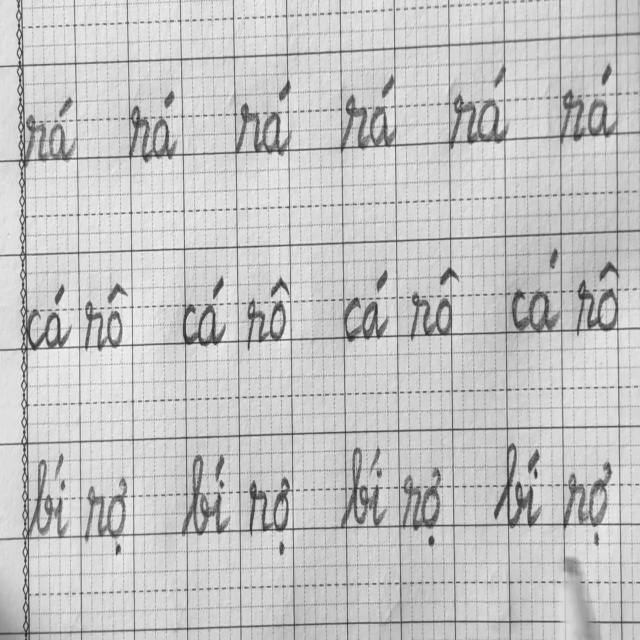 rá rá rá rá rá rá
cá rô cá rô cá rô cá rô
bí rợ bí rợ bí rợ bí rợ